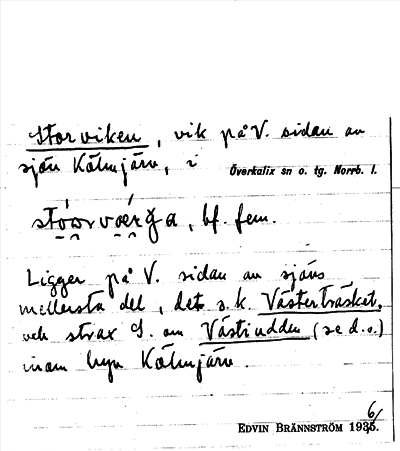 Storviken, vik på V. sidan av
sjön Kälmjärv, i Överkalix sn o. tg. Norrb. l.
bf. fem.
Ligger på V. sidan av sjöns
mellersta del, det s. k. Västerträsket,
och strax S. om Västiudden (se d. o.)
inom byn Kälmjärv.
EDVIN BRÄNNSTRÖM 1936.